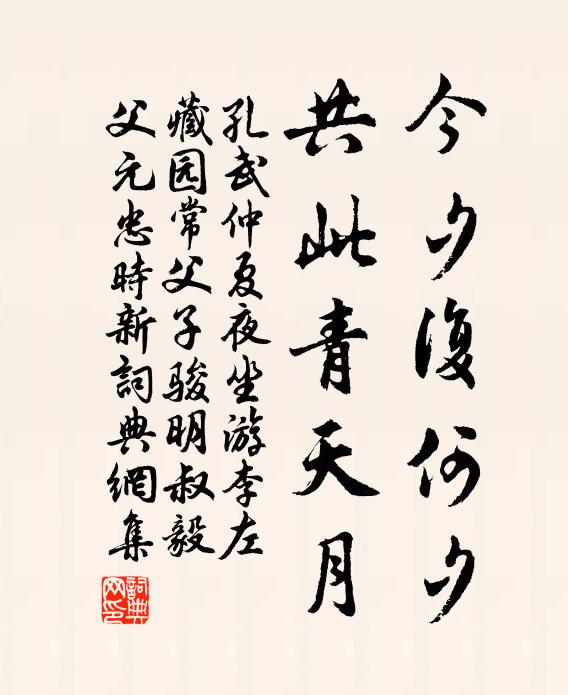 今夕復何夕
共此青天月
孔武仲夏夜坐游李左
藏园常父子骏明叔毅
父元忠時新詞典網集
詞典網印